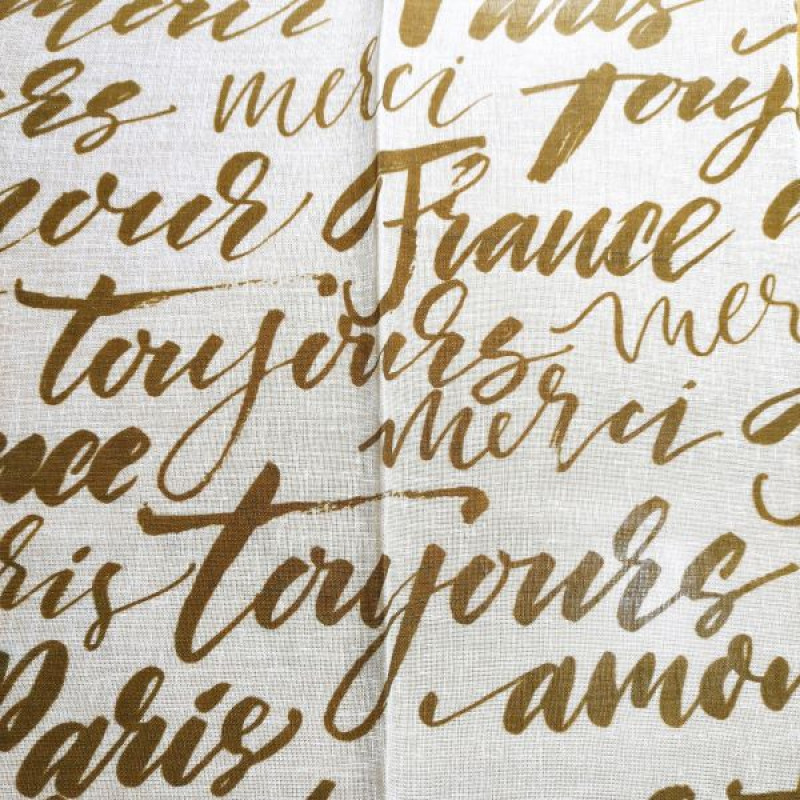 amour Paris
toujours merci Toujours
amour France
toujours merci
France merci
Paris toujours
Paris amour